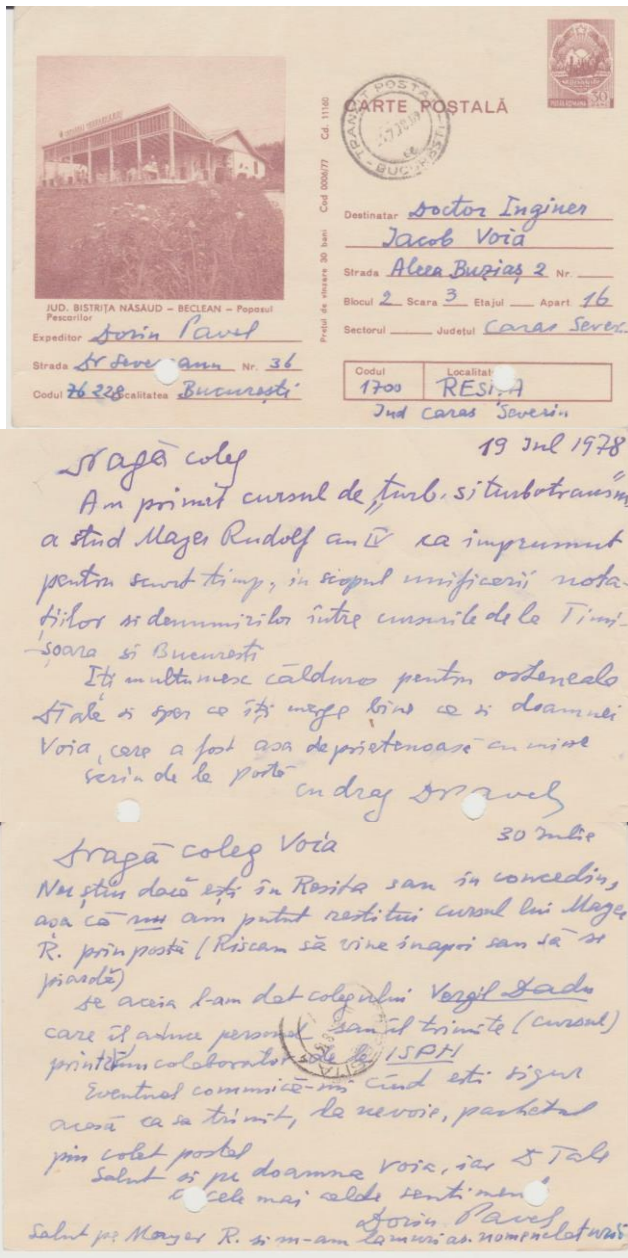 CARTE POSTALĂ
POSTA ROMANA
TRANZIT POSTAL
BUCUREȘTI
Prețul de vînzare 30 bani Cod 0006/77 Cd. 11160
JUD. BISTRIȚA NĂSĂUD – BECLEAN – Popasul
Pescarilor
Expeditor Dorin Pavel
Strada Dr Severeanu Nr. 36
Codul 76228 Localitatea București
Destinatar Doctor Inginer
Iacob Voia
Strada Aleea Buziaș 2 Nr.
Blocul 2 Scara 3 Etajul Apart 16
Sectorul Județul Caras Sever.
Codul Localitat
1700 REȘIȚA
Jud Caras Severin
19 Iul 1978
Dragă coleg
Am primit cursul de "turb. si turbotransm"
a stud Mayer Rudolf an IV ca imprumut
pentru scurt timp, in scopul unificerii nota-
țiilor si denumirilor între cursurile de la Timi-
șoara si București
Iți multumesc călduros pentru osteneala
DTale si sper ca îți merge bine ca si doamnei
Voia, care a fost asa de prietenoasă cu mine
Scriu de la poștă
cu drag DPavel
30 Iulie
Dragă coleg Voia
Nu știu dacă ești în Resita sau in concediu,
asa că nu am putut restitui cursul lui Mayer
R. prin postă (Riscam să vine inapoi sau să se
piardă)
De aceia l-am dat colegului Vergil Dadu
care îl aduce personal sau il trimite (cursul)
printr'un colaborator de la ISPH
Eventual comunică-mi cînd esti sigur
acasă ca sa trimit, la nevoie, pachetul
prin colet postal
Salut si pe doamna Voia, iar D Tale
cele mai calde sentimen
Dorin Pavel
Salut pe Mayer R. si m-am lamurit as. nomenclaturii